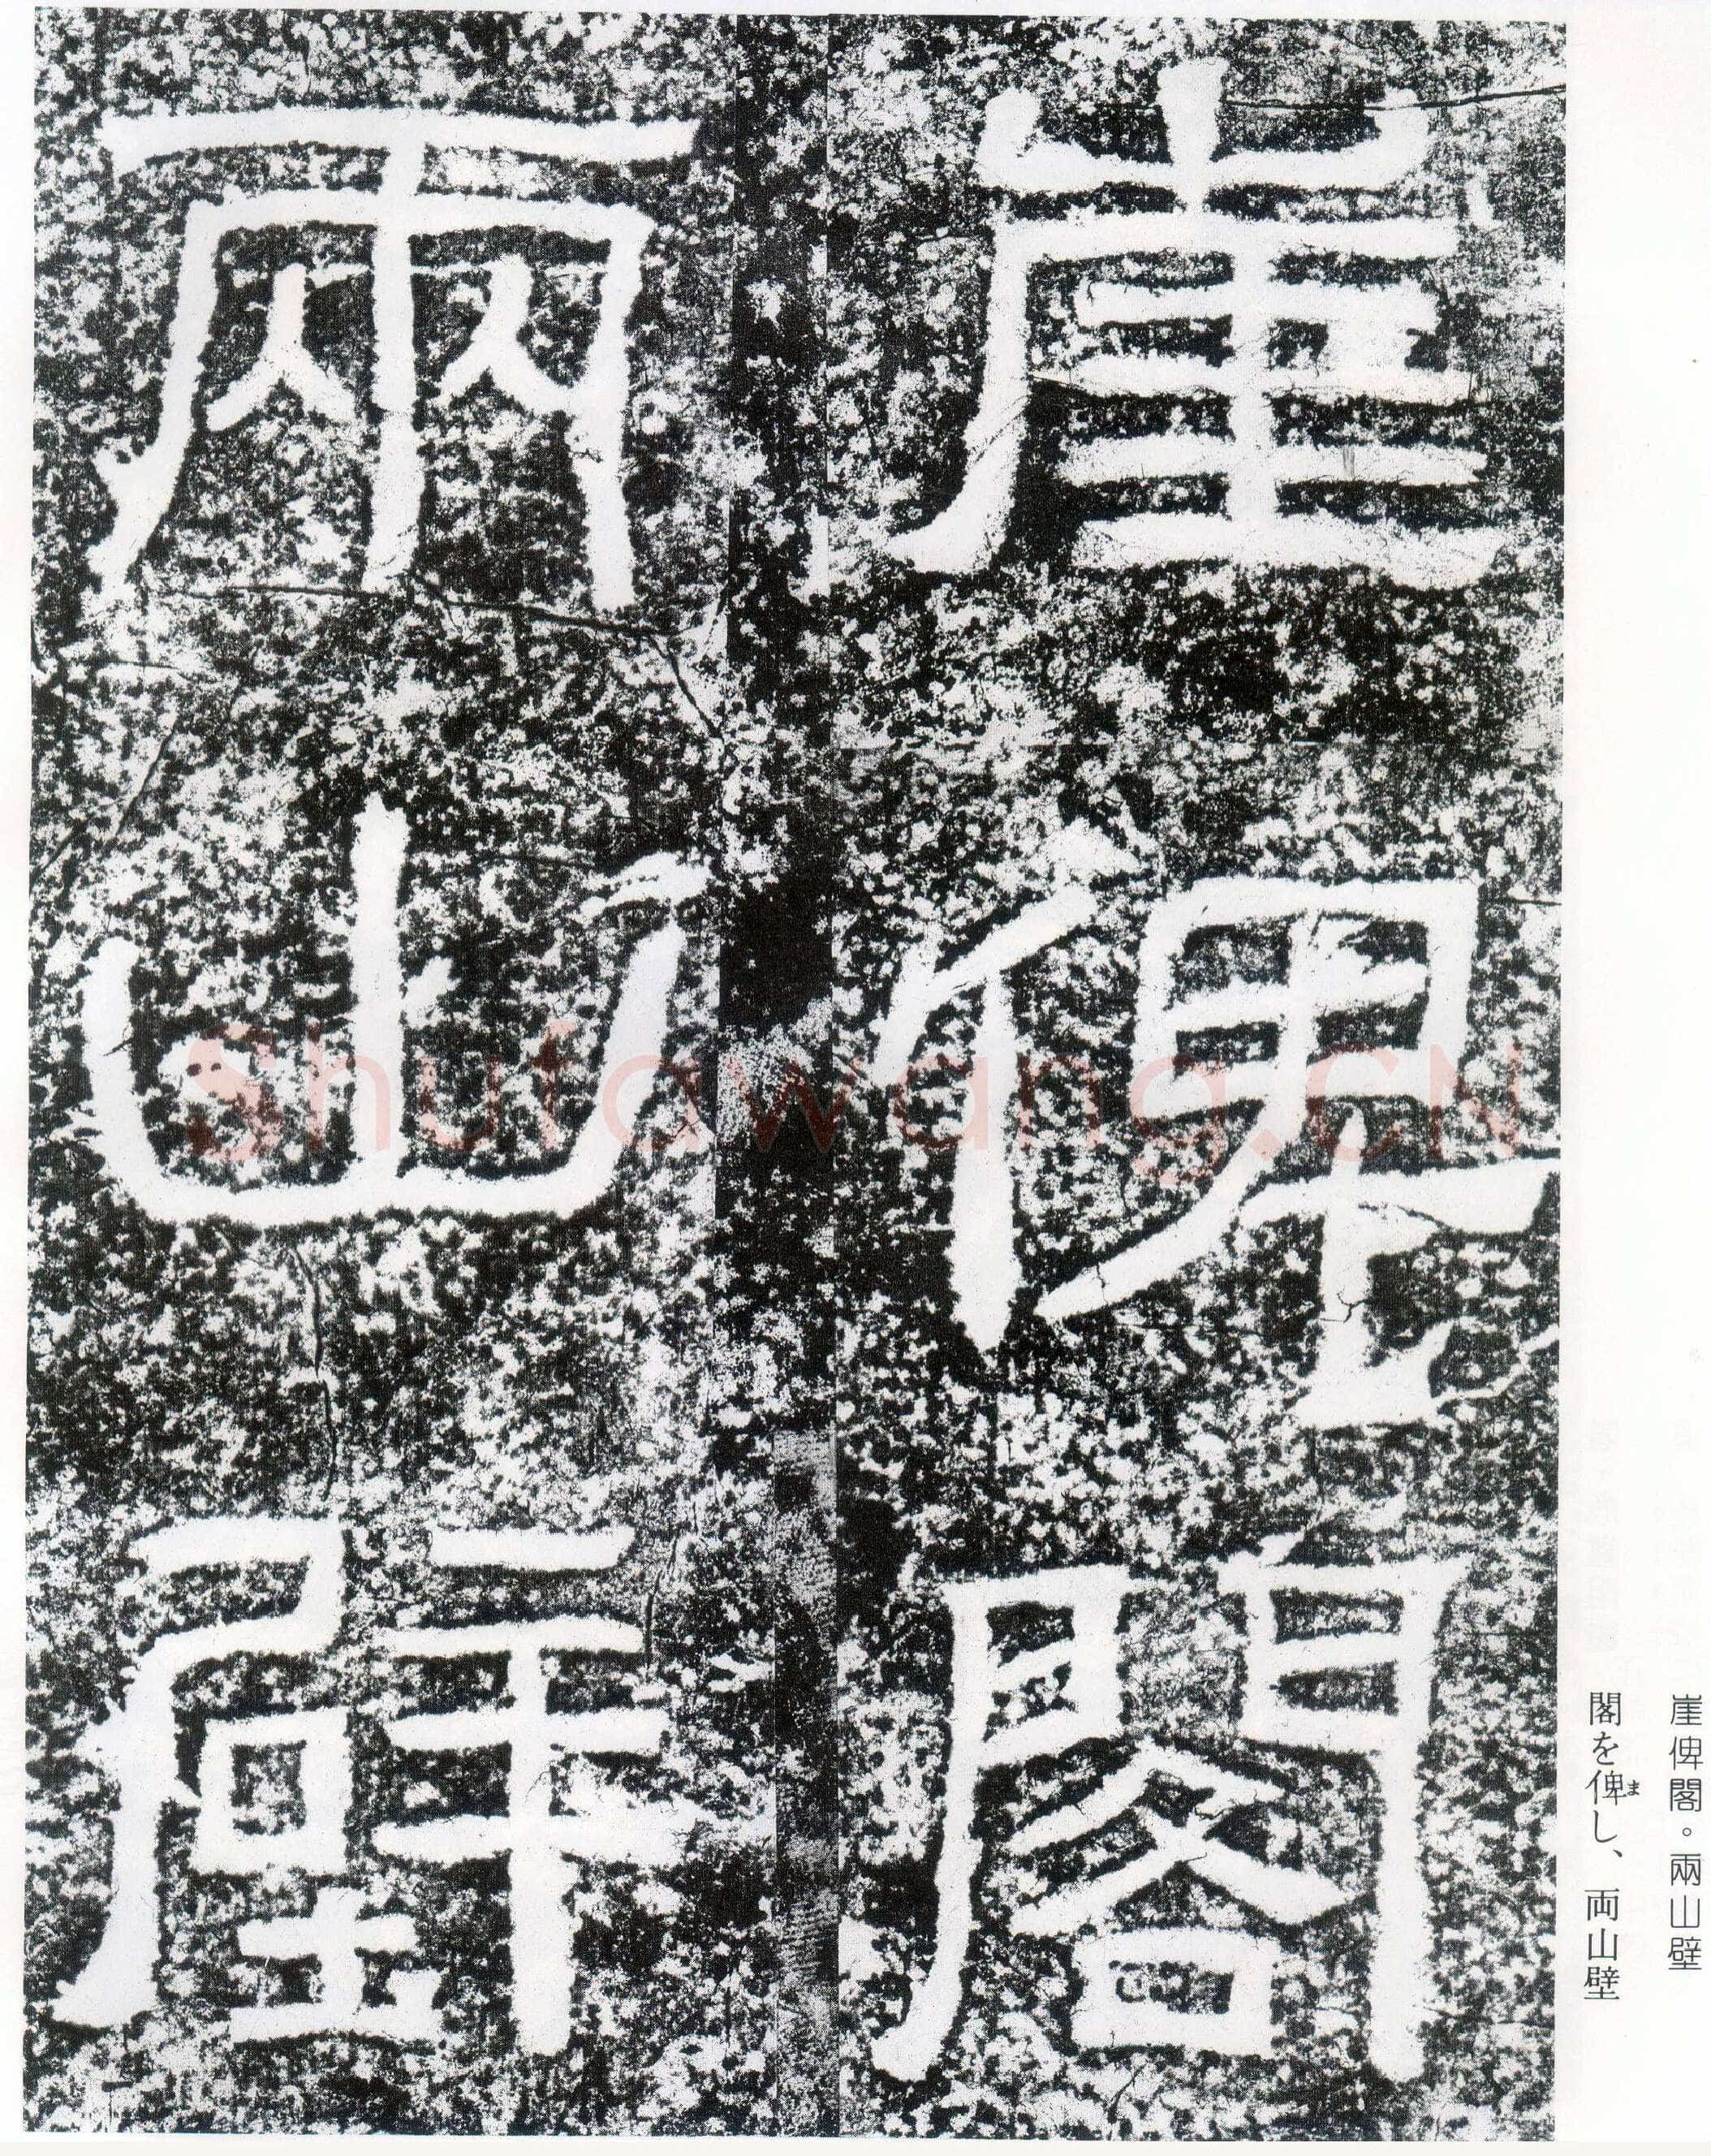 崖俾閣
兩山壁
崖俾閣。兩山壁
閣を俾し、両山壁
ま
Shufawang.CN